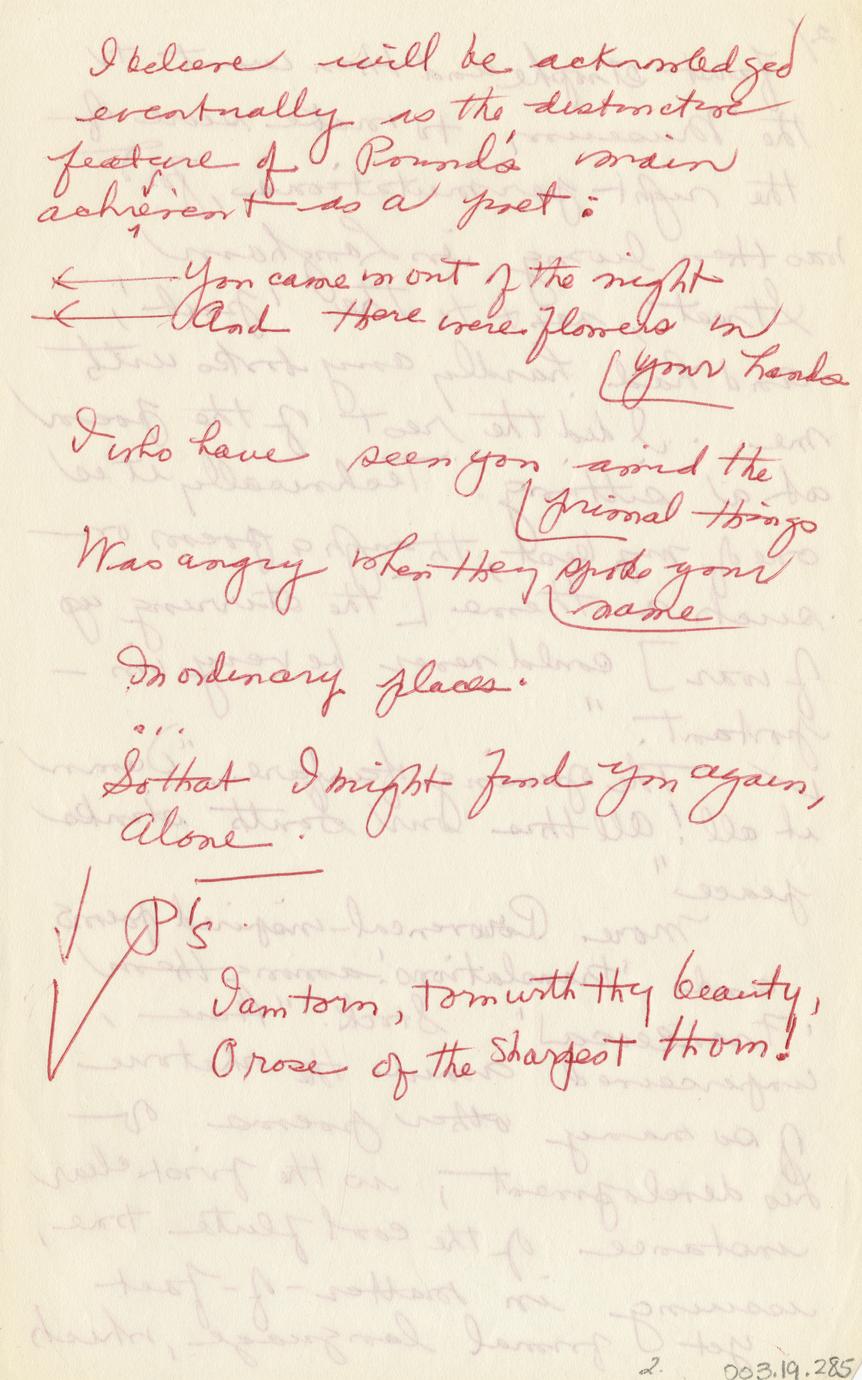 I believe will be acknowledged
eventually as the distinctive
feature of Pound's main
achievent as a poet:
You came in out of the night
And there were flowers in
your hands
I who have seen you amid the
primal things
Was angry when they spoke your
name
In ordinary places.
...
So that I might find you again,
Alone.
P's
I am torn, torn with thy beauty,
O rose of the sharpest thorn!
2. 003.19.285